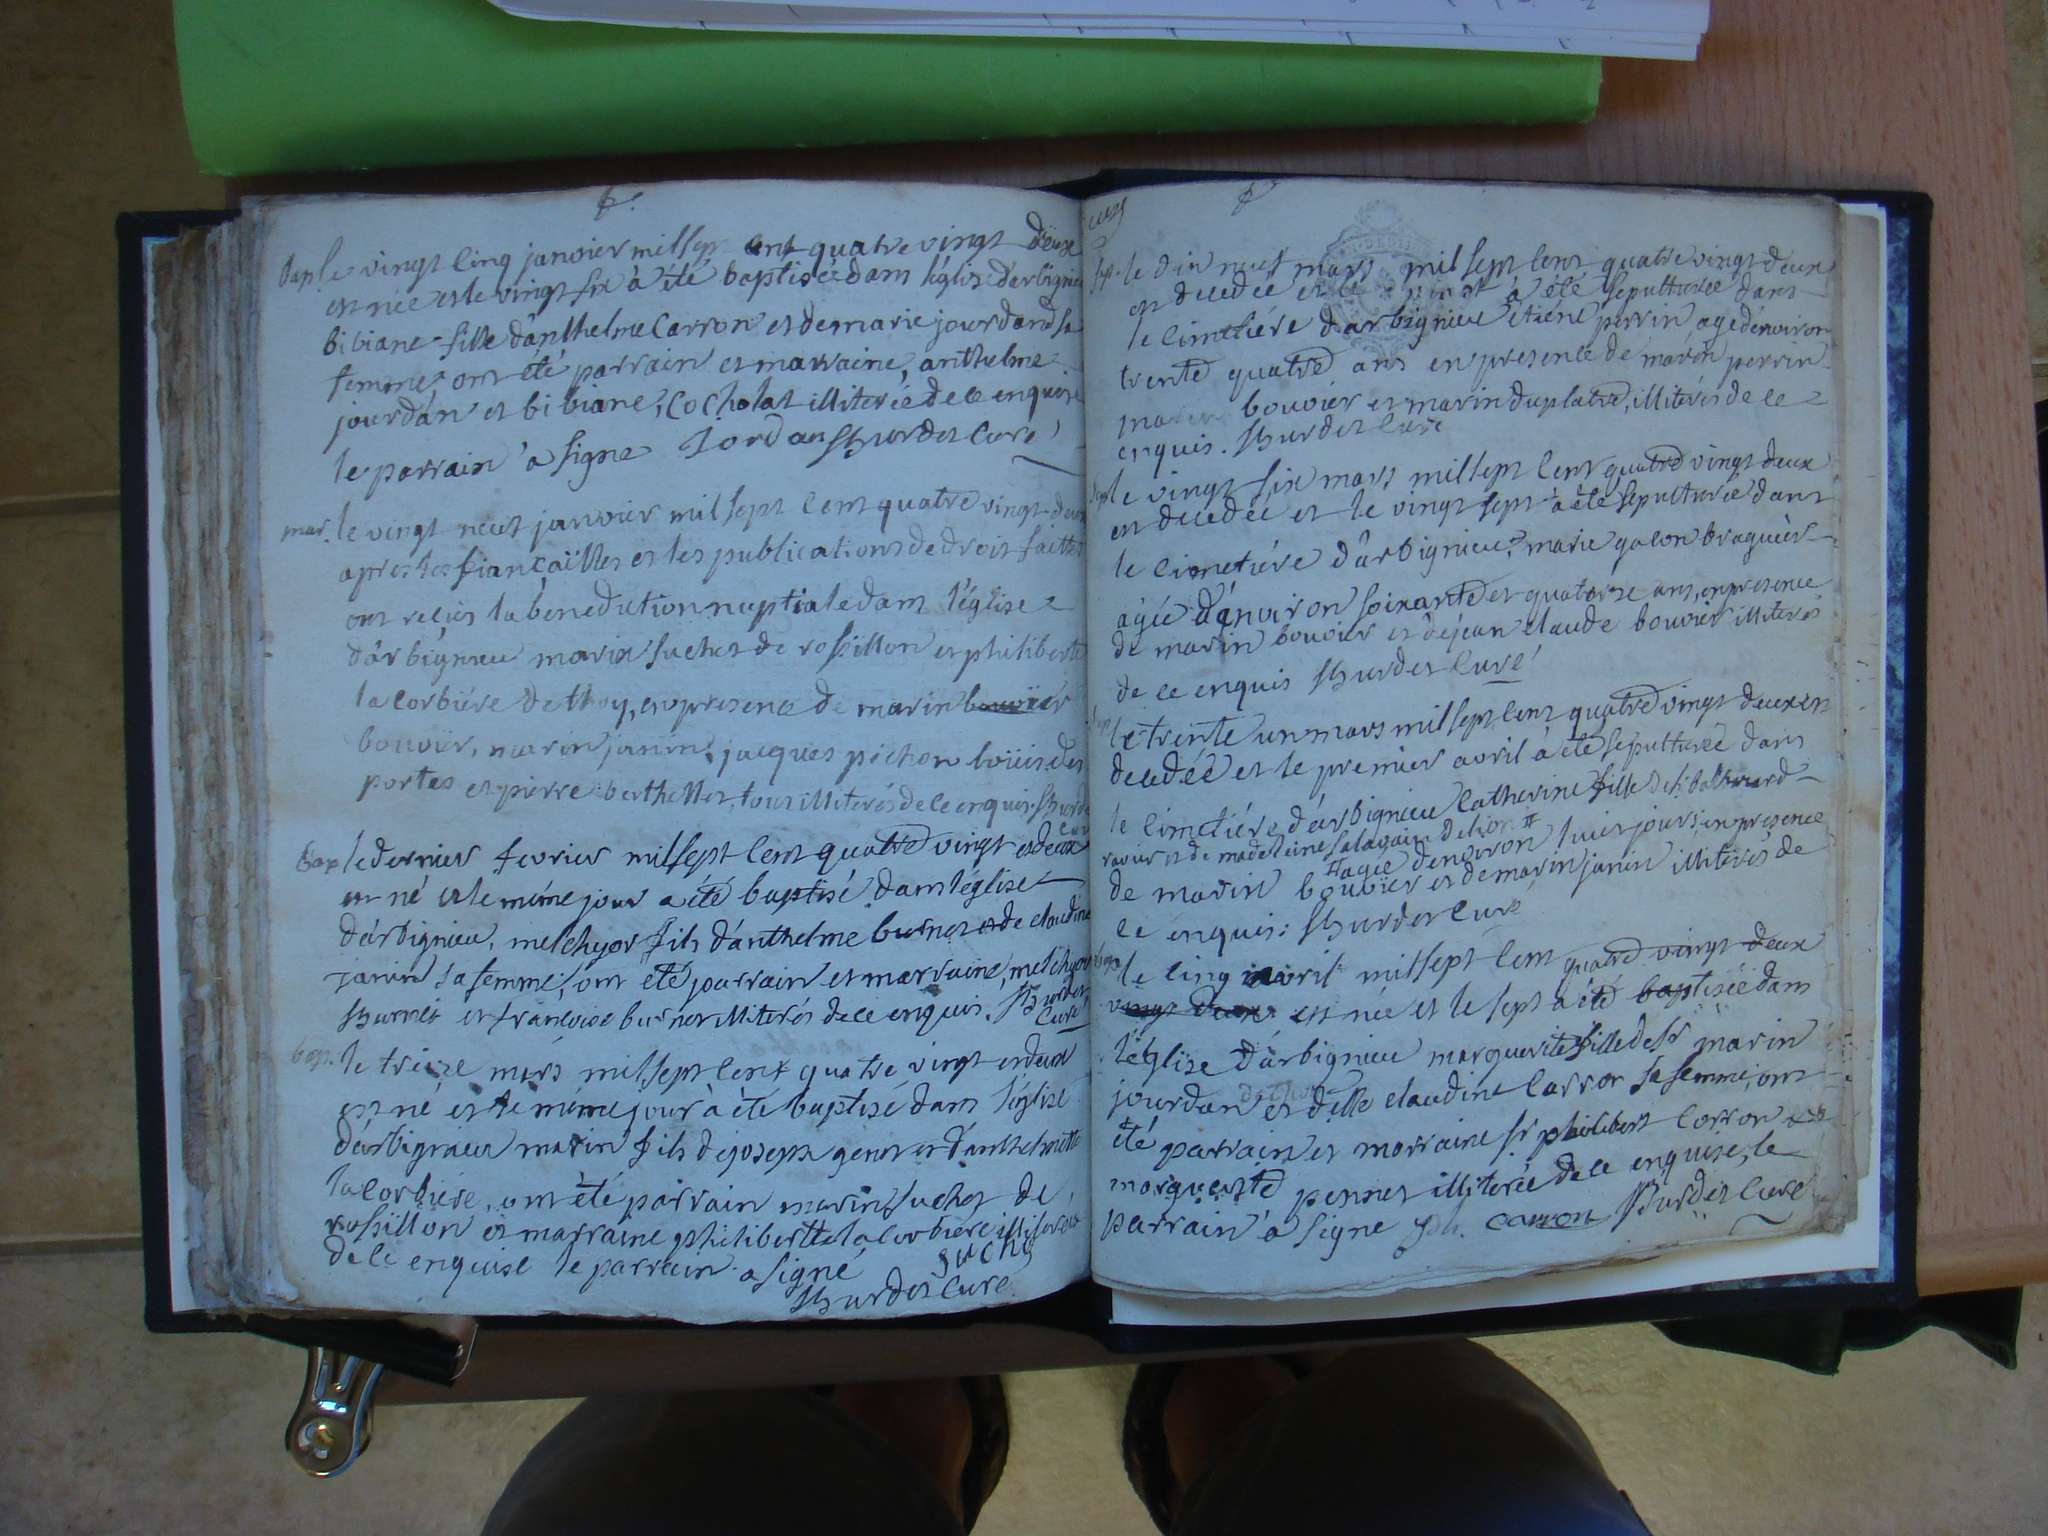 bap. le vingt cinq janvier mil sept cent quatre vingt deux
est née et le vingt six à été baptisée dans l'église d'arbignieu
bibiane fille d'anthelme Carron et de marie jourdan sa
femme, ont été parrain et marraine, anthelme
jourdan et bibiane, Cocholat illiterée de ce enquise
le parrain à signe Jordan hurdet curé
mar. le vingt neuf janvier mil sept cent quatre vingt deux
apres les fiancailles et les publications de droit faittes
ont reçus la benediction nuptiale dans l'église
d'arbignieu marin suchet de rossillon et philiberte
la corbiére de thoy, en presence de marin bouvier
bouvier, marin janin, jacques pichon loüis des
portes et pierre berthellet, tous illiterés de ce enquis. hurdet
curé
bap. le dernier fevrier mil sept cent quatre vingt et deux
est né et le méme jour a été baptisé dans l'église
d'arbignieu, melchyor fils d'anthelme burnet et de claudine
janin sa femme, ont été parrain et marraine, melchyor
burnet et francoise burnet illiterés de ce enquis. hurdet
curé
bap. le treize mars mil sept cent quatre vingt et deux
est né et le méme jour à été baptisé dans l'église
d'arbignieu marin fils de joseph genet et d'anthelmette
la corbiére, ont été parrain marin suchet de
rossillon et marraine philiberte la corbiere illiterée
de ce enquise le parrain a signé suchet
hurdet curé
sep. le dix neuf mars mil sept cent quatre vingt deux
est decedée et le vingt à été sepulturée dans
le cimetiére d'arbignieu étiéne perrin agé d'environ
trente quatre ans en presence de marin perrin
bouvier et marin duplatre, illiterés de ce
enquis. hurdet curé
sep. le vingt six mars mil sept cent quatre vingt deux
est decedée et le vingt sept à été sepulturée dans
le cimetiére d'arbignieu, marie galon
agée d'environ soixante et quatorze ans, en presence
de marin bouvier et de jean claude bouvier illiterés
de ce enquis hurdet curé
sep. le trente un mars mil sept cent quatre vingt deux est
decedée et le premier avril à été sepulturée dans
le cimetiére d'arbignieu Catherine fille de
ravier et de madeleine salavain de lion #
# agée d'environ huit jours, en presence
de marin bouvier et de marin janin illiterés de
ce enquis: hurdet curé
bap. le cinq avril mil sept cent quatre vingt deux
vingt deux est née et le sept à été baptisée dans
l'église d'arbignieu marguerite fille de sr marin
jourdan et delle claudine Carron sa femme, ont
été parrain et marraine sr philibert Carron et
marguerite pennet illiterée de ce enquise, le
parrain à signe ph. Carron hurdet curé